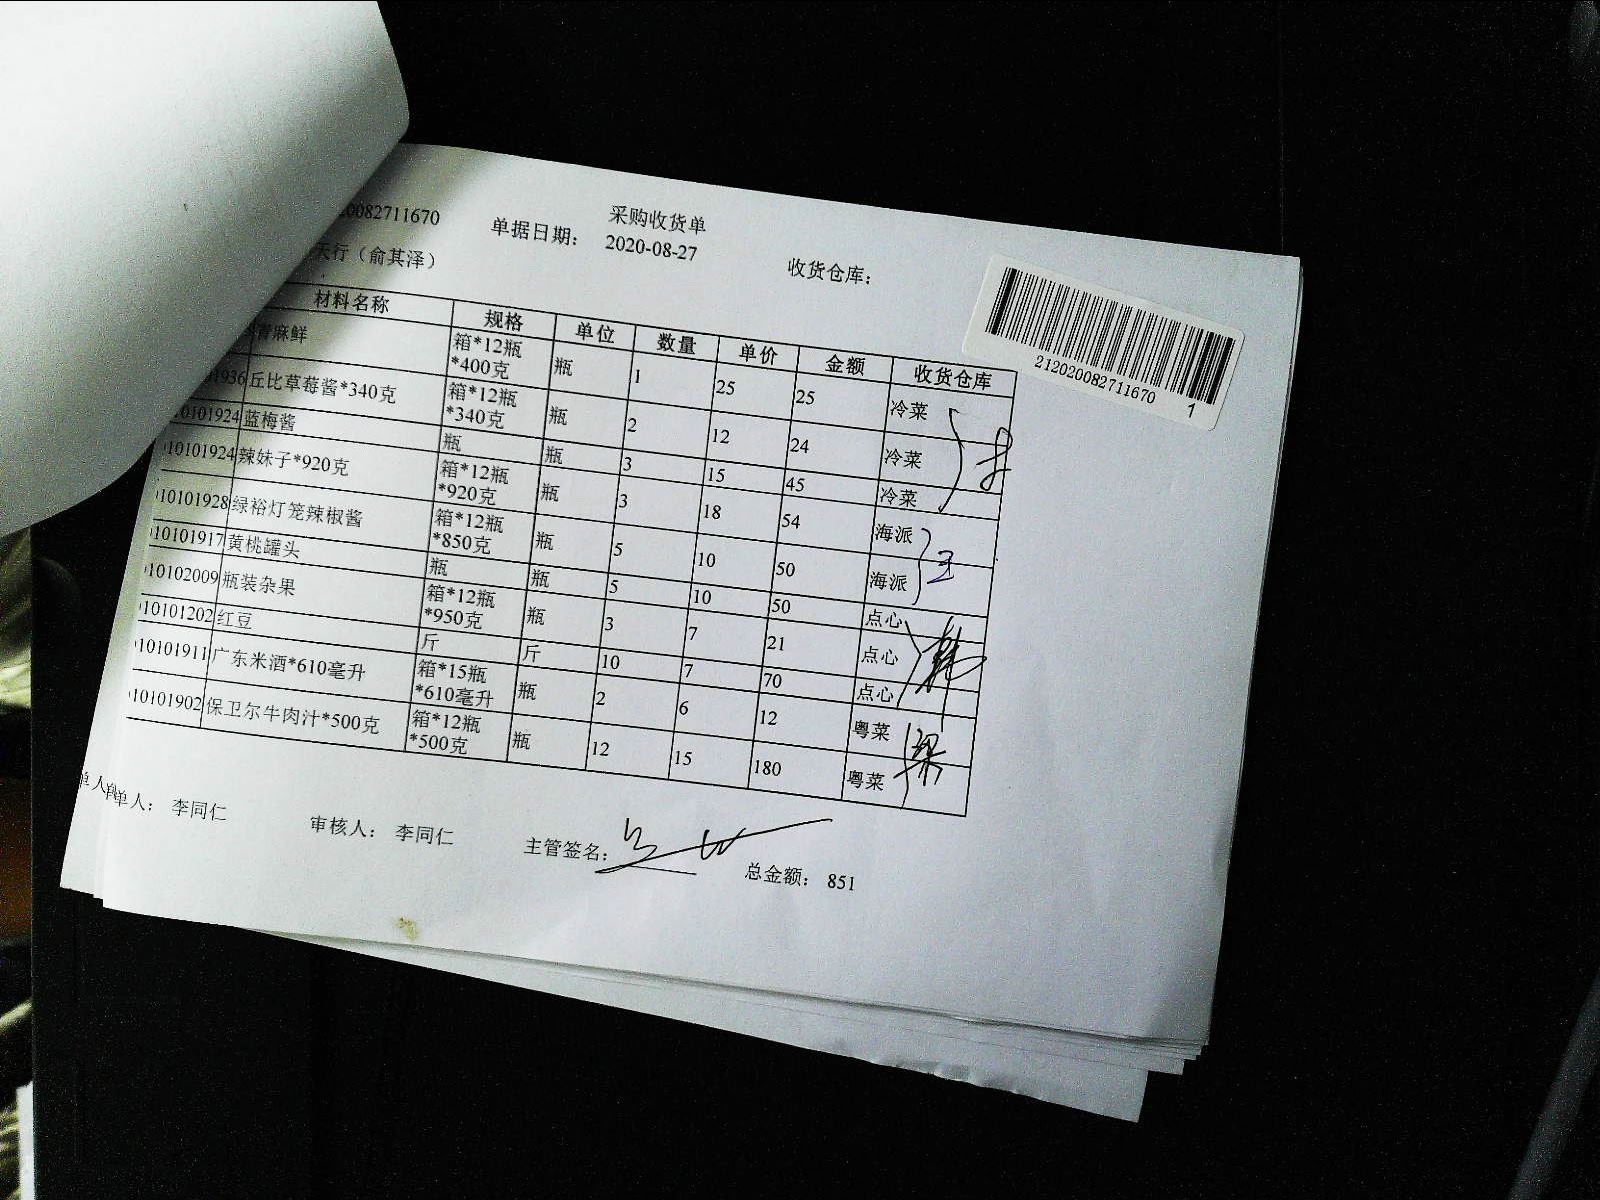 采购收货单
20082711670 单据日期： 2020-08-27 收货仓库：
天行（俞其泽）
212020082711670 1
材料名称 规格 单位 数量 单价 金额 收货仓库
青麻鲜 箱*12瓶*400克 瓶 1 25 25 冷菜
01936 丘比草莓酱*340克 箱*12瓶*340克 瓶 2 12 24 冷菜
0101924 蓝梅酱 瓶 瓶 3 15 45 冷菜
10101924 辣妹子*920克 箱*12瓶*920克 瓶 3 18 54 海派
10101928 绿裕灯笼辣椒酱 箱*12瓶*850克 瓶 5 10 50 海派
10101917 黄桃罐头 瓶 瓶 5 10 50 点心
10102009 瓶装杂果 箱*12瓶*950克 瓶 3 7 21 点心
10101202 红豆 斤 斤 10 7 70 点心
10101911 广东米酒*610毫升 箱*15瓶*610毫升 瓶 2 6 12 粤菜
10101902 保卫尔牛肉汁*500克 箱*12瓶*500克 瓶 12 15 180 粤菜
王
梁
单人： 李同仁 审核人： 李同仁 主管签名： 总金额： 851